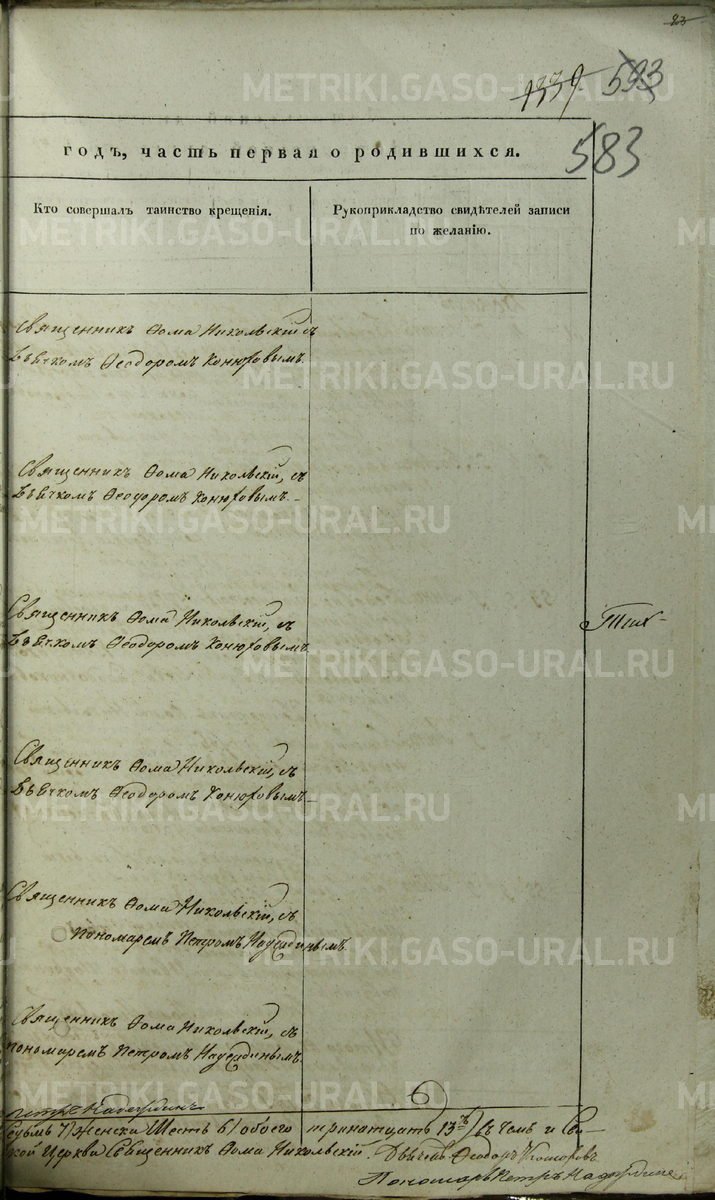 23
1339. 593
583
годъ, часть первая о родившихся.
Кто совершалъ таинство крещенія.
Рукоприкладство свидѣтелей записи
по желанію.
Священникъ Ѳома Никольскій съ
Дьячкомъ Ѳеодоромъ Конюховымъ.
Священникъ Ѳома Никольскій, съ
Дьячкомъ Ѳеодоромъ Конюховымъ.
Священникъ Ѳома Никольскій, съ
Дьячкомъ Ѳеодоромъ Конюховымъ.
Священникъ Ѳома Никольскій, съ
Дьячкомъ Ѳеодоромъ Конюховымъ
Священникъ Ѳома Никольскій, съ
пономаремъ Петромъ
Священникъ Ѳома Никольскій, съ
пономаремъ Петромъ
Петръ
женска шесть 6/ обоего тринатцать 13 въ чемъ и
Церкви Священникъ Ѳома Никольскій. Ѳеодоръ
Пономарь Петръ
METRIKI.GASO-URAL.RU